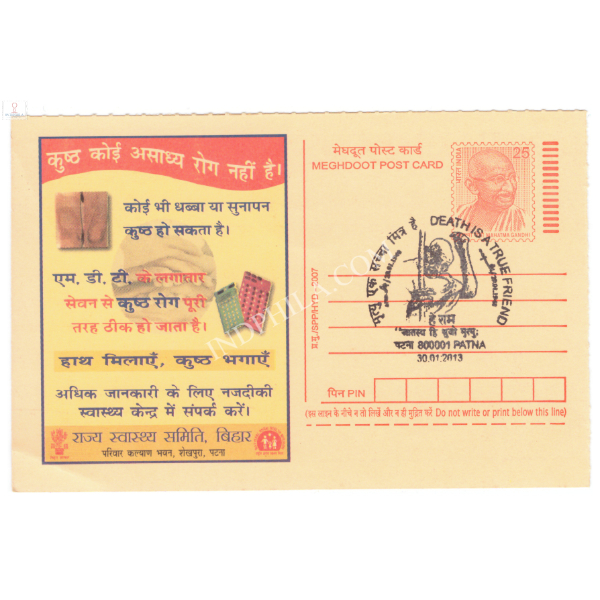 कुष्ठ कोई असाध्य रोग नहीं है।
कोई भी धब्बा या सुनापन
कुष्ठ हो सकता है।
एम. डी. टी. के लगातार
सेवन से कुष्ठ रोग पूरी
तरह ठीक हो जाता है।
हाथ मिलाएँ, कुष्ठ भगाएँ
अधिक जानकारी के लिए नजदीकी
स्वास्थ्य केन्द्र में संपर्क करें।
राज्य स्वास्थ्य समिति, बिहार
परिवार कल्याण भवन, शेखपुरा, पटना
मेघदूत पोस्ट कार्ड
MEGHDOOT POST CARD
25
भारत INDIA
MAHATMA GANDHI
मृत्यु एक सच्चा मित्र है DEATH IS A TRUE FRIEND
हे राम
"जातस्य हि ध्रुवो मृत्युः
पटना 800001 PATNA
30.01.2013
प्र.मु./SPP/HYD.-2007
पिन PIN
(इस लाइन के नीचे न तो लिखें और न ही मुद्रित करें Do not write or print below this line)
INDPHILA.COM